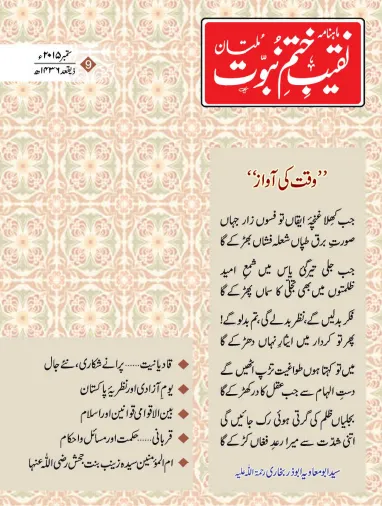 ماہنامہ
نقیب ختم نبوت ملتان
9
ستمبر ۲۰۱۵ء
ذیقعد ۱۴۳۶ھ
”وقت کی آواز“
جب کھلا غنچۂ ایقاں تو فسوں زارِ جہاں
صورتِ برق تپاں شعلہ فشاں بھڑکے گا
جب جلی تیرگیِ یاس میں شمعِ امید
ظلمتوں میں بھی تجلی کا سماں پھڑکے گا
فکر بدلیں گے، نظر بدلے گی، ہم بدلو گے!
پھر تو کردار میں ایثار نہاں دھڑکے گا
میں تو کہتا ہوں طواغیت تڑپ اٹھیں گے
دستِ الہام سے جب عقل کا در کھڑکے گا
بجلیاں ظلم کی گرتی ہوئی رک جائیں گی
اتنی شدت سے میرا رعدِ فغاں کڑکے گا
سید ابو معاویہ ابوذر بخاری رحمۃ اللہ علیہ
قادیانیت...... پرانے شکاری، نئے جال
یوم آزادی اور نظریۂ پاکستان
بین الاقوامی قوانین اور اسلام
قربانی...... حکمت اور مسائل و احکام
ام المؤمنین سیدہ زینب بنت جحش رضی اللہ عنہا